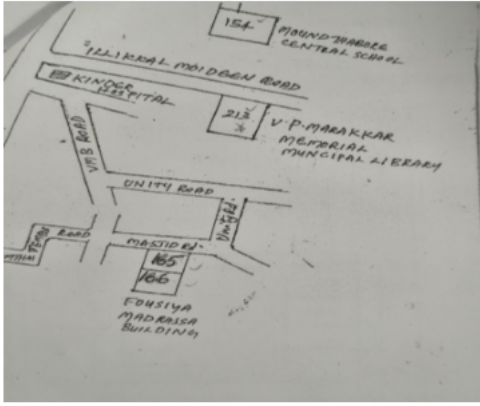 154
MOUNDTHABORE
CENTRAL SCHOOL
ILLIKKAL MOIDEEN ROAD
KINDER
HOSPITAL
213
V.P. MARAKKAR
MEMORIAL
MUNCIPAL LIBRARY
VMB ROAD
UNITY ROAD
ROAD
MASTID Rd.
MAIN
165
166
FOUSIYA
MADRASSA
BUILDING